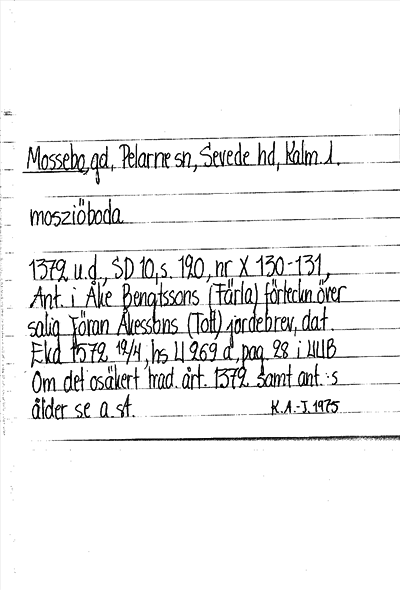 Mossebo, gd, Pelarne sn, Sevede hd, Kalm. l.
mosziöboda
1372 u.d., SD 10, s. 120, nr X 130-131,
Ant. i Åke Bengtssons (Färla) förteckn. över
salig Jöran Åkessons (Tott) jordebrev, dat.
Ekd 1572 12/4, hs H 269 a, pag. 28 i UUB
Om det osäkert trad. årt. 1372 samt ant.:s
ålder se a. st.
K.A.-J. 1975